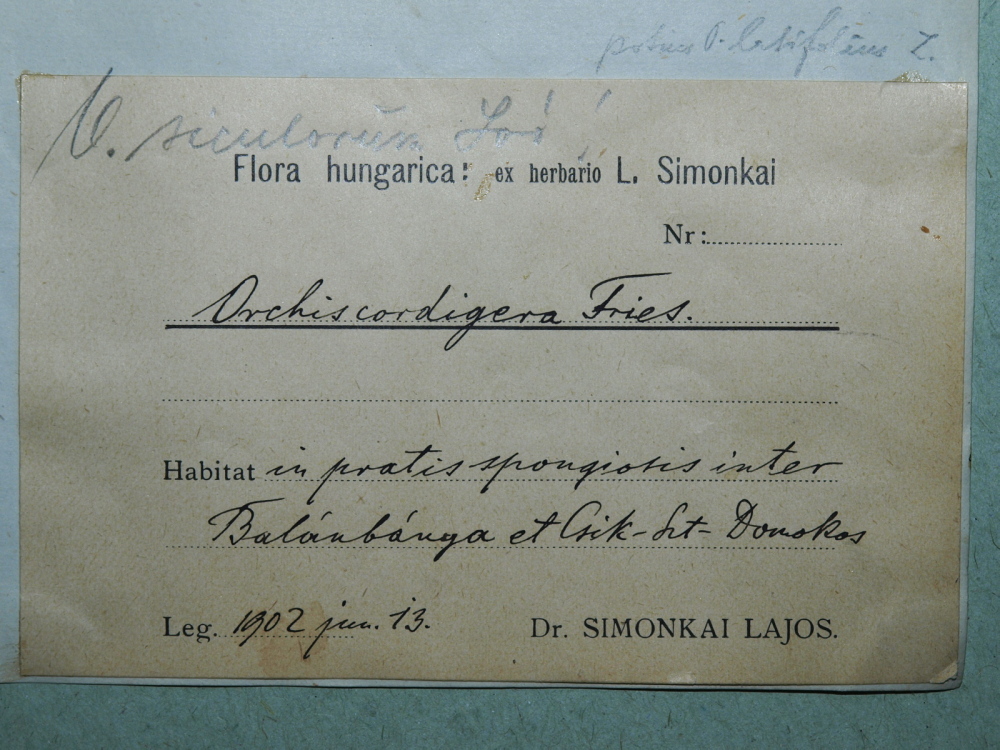 potius O. latifolium Z.
O. siculorum Soó!
Flora hungarica: ex herbario L. Simonkai
Nr:
Orchis cordigera Fries.
Habitat in pratis spongiosis inter
Balánbánya et Csik-Szt-Domokos
Leg. 1902 jun. 13. Dr. SIMONKAI LAJOS.